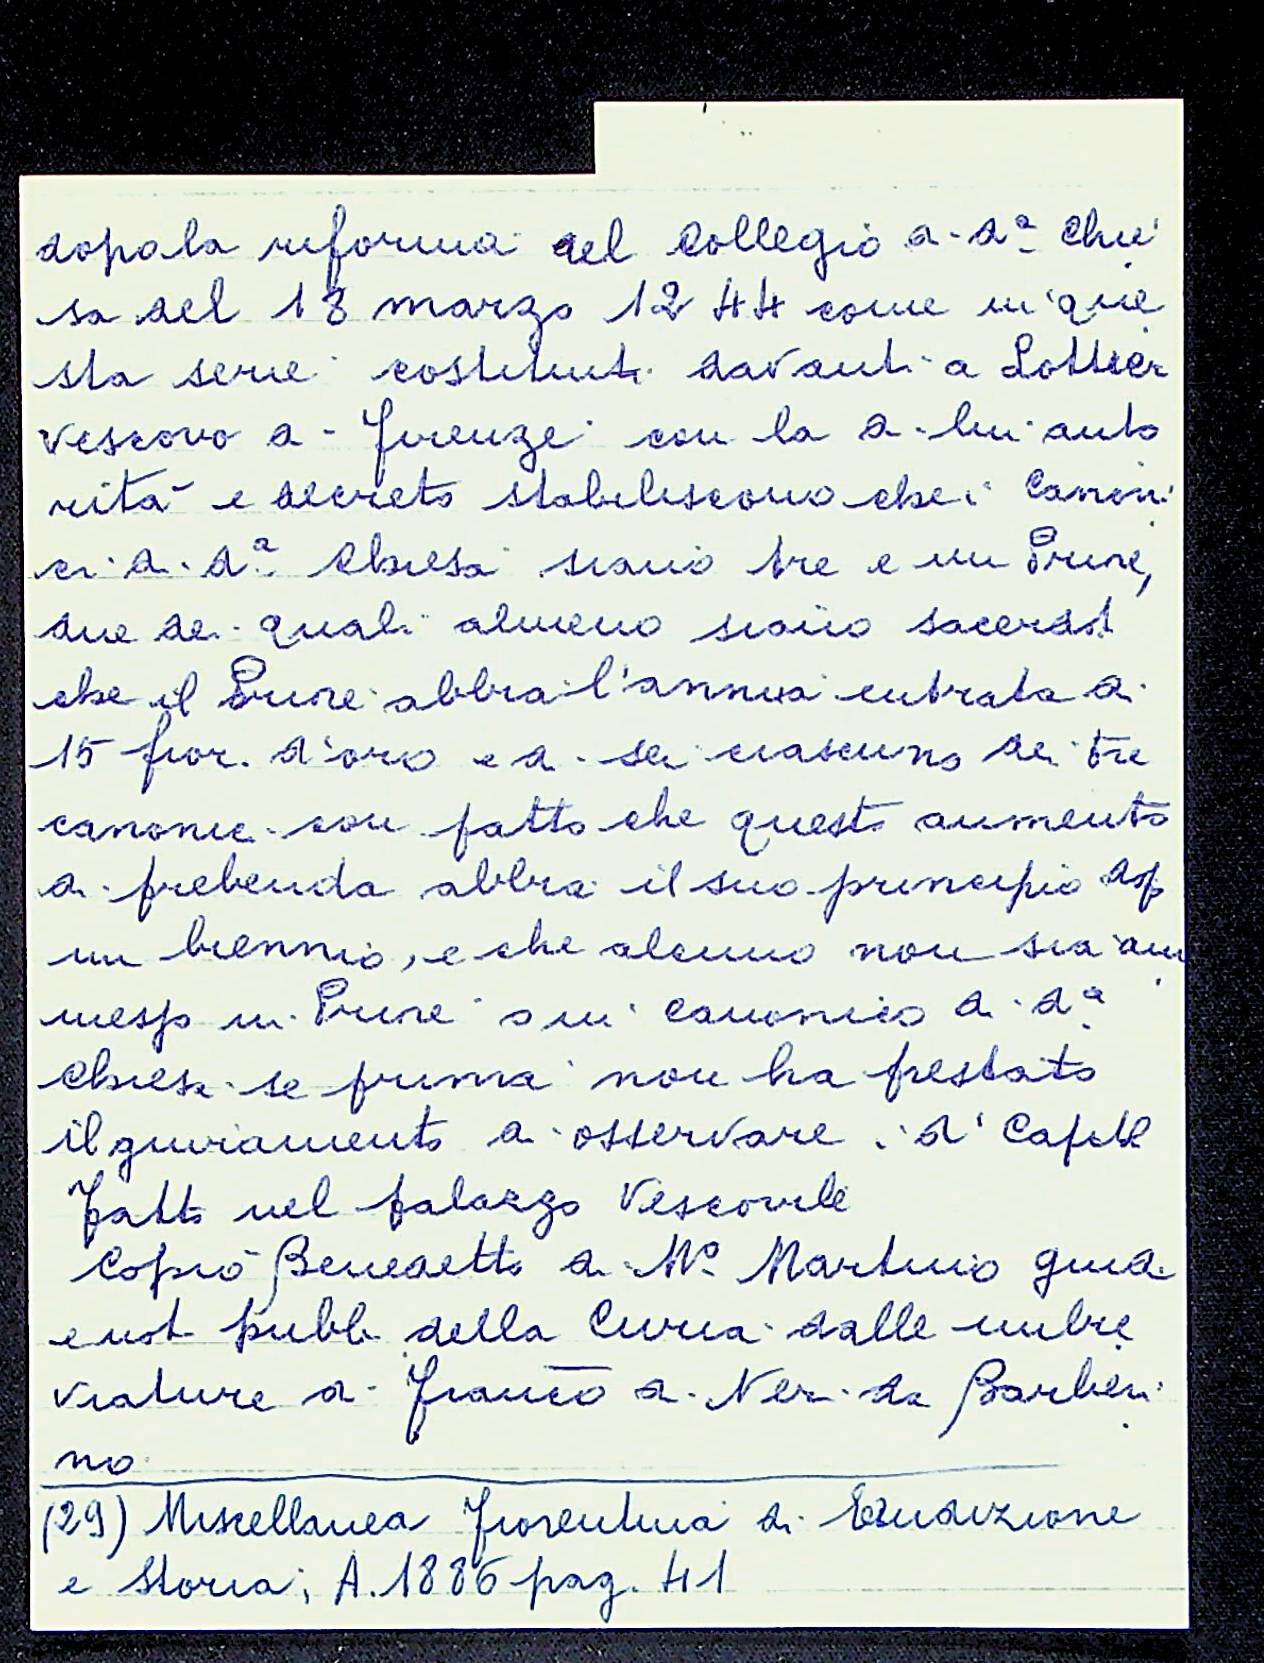 dopo la riforma del Collegio di d.ª Chie
sa del 18 marzo 1244 come in que
sta serie costituiti davanti a Lottieri
Vescovo di Firenze con la di lui auto
rità e decreto stabiliscono che i Canoni
ci di d.ª Chiesa siano tre e un Priore,
due dei quali almeno siano sacerdoti
che il Priore abbia l'annua entrata di
15 fior. d'oro e di sei ciascuno dei tre
canonici con patto che questo aumento
di prebenda abbia il suo principio dop
un biennio, e che alcuno non sia am
messo in Priore o in canonico di d.ª
Chiesa se prima non ha prestato
il giuramento di osservare i d.i Capitoli
Fatto nel palazzo Vescovile
Copiò Benedetto di M.º Martino giud.
e not. pubb. della Curia dalle imbre
viature di Franco di Neri da Barberi
no
(29) Miscellanea Fiorentina di Erudizione
e Storia; A. 1886 pag. 41